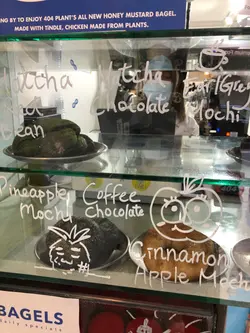 NG BY TO ENJOY 404 PLANT'S ALL NEW HONEY MUSTARD BAGEL.
MADE WITH TINDLE, CHICKEN MADE FROM PLANTS.
Matcha
Red
Bean
Matcha
Chocolate
Earl Grey
Mochi
Pineapple
Mochi
Coffee
Chocolate
Cinnamon
Apple Mochi
BAGELS
daily specials